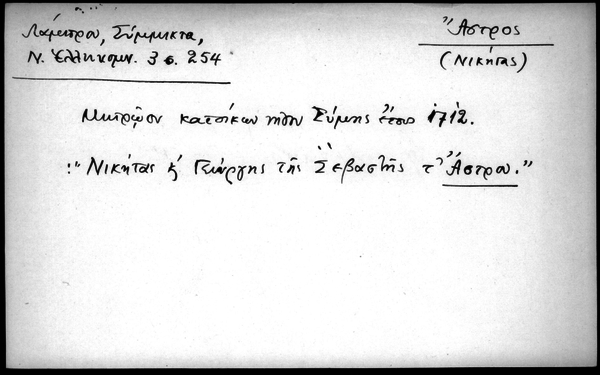 Λάμπρου, Σύμμικτα,
Ν. Ἑλληνομν. 3 σ. 254
Ἄστρος
(Νικήτας)
Μητρῷον κατοίκων νήσου Σύμης ἔτους 1712.
:"Νικήτας κ' Γεώργης τῆς Σεβαστῆς τ' Ἄστρου."